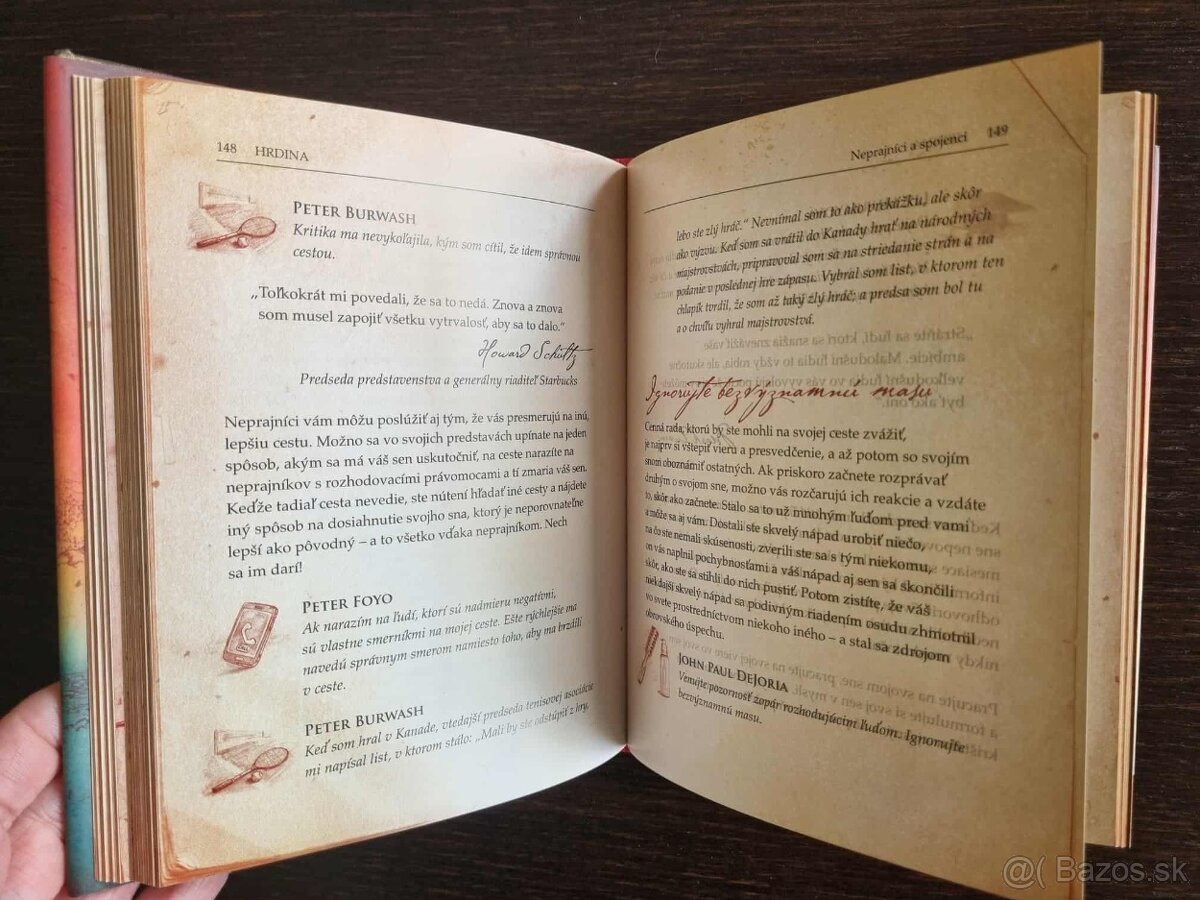 148 HRDINA
PETER BURWASH
Kritika ma nevykoľajila, kým som cítil, že idem správnou
cestou.
„Toľkokrát mi povedali, že sa to nedá. Znova a znova
som musel zapojiť všetku vytrvalosť, aby sa to dalo.“
Howard Schultz
Predseda predstavenstva a generálny riaditeľ Starbucks
Neprajníci vám môžu poslúžiť aj tým, že vás presmerujú na inú,
lepšiu cestu. Možno sa vo svojich predstavách upínate na jeden
spôsob, akým sa má váš sen uskutočniť, na ceste narazíte na
neprajníkov s rozhodovacími právomocami a tí zmaria váš sen.
Keďže tadiaľ cesta nevedie, ste nútení hľadať iné cesty a nájdete
iný spôsob na dosiahnutie svojho sna, ktorý je neporovnateľne
lepší ako pôvodný – a to všetko vďaka neprajníkom. Nech
sa im darí!
PETER FOYO
Ak narazím na ľudí, ktorí sú nadmieru negatívni,
sú vlastne smerníkmi na mojej ceste. Ešte rýchlejšie ma
navedú správnym smerom namiesto toho, aby ma brzdili
v ceste.
PETER BURWASH
Keď som hral v Kanade, vtedajší predseda tenisovej asociácie
mi napísal list, v ktorom stálo: „Mali by ste odstúpiť z hry,
Neprajníci a spojenci 149
lebo ste zlý hráč.“ Nevnímal som to ako prekážku, ale skôr
ako výzvu. Keď som sa vrátil do Kanady hrať na národných
majstrovstvách, pripravoval som sa na striedanie strán a na
podanie v poslednej hre zápasu. Vybral som list, v ktorom ten
chlapík tvrdil, že som až taký zlý hráč; a predsa som bol tu
a o chvíľu vyhral majstrovstvá.
Ignorujte bezvýznamnú masu
Cenná rada, ktorú by ste mohli na svojej ceste zvážiť,
je najprv si vštepiť vieru a presvedčenie, a až potom so svojím
snom oboznámiť ostatných. Ak priskoro začnete rozprávať
druhým o svojom sne, možno vás rozčarujú ich reakcie a vzdáte
to, skôr ako začnete. Stalo sa to už mnohým ľuďom pred vami
a môže sa aj vám. Dostali ste skvelý nápad urobiť niečo,
na čo ste nemali skúsenosti, zverili ste sa s tým niekomu,
on vás naplnil pochybnosťami a váš nápad aj sen sa skončili
skôr, ako ste sa stihli do nich pustiť. Potom zistíte, že váš
niekdajší skvelý nápad sa podivným riadením osudu zhmotnil
vo svete prostredníctvom niekoho iného – a stal sa zdrojom
obrovského úspechu.
JOHN PAUL DEJORIA
Venujte pozornosť zopár rozhodujúcim ľuďom. Ignorujte
bezvýznamnú masu.
@( Bazos.sk